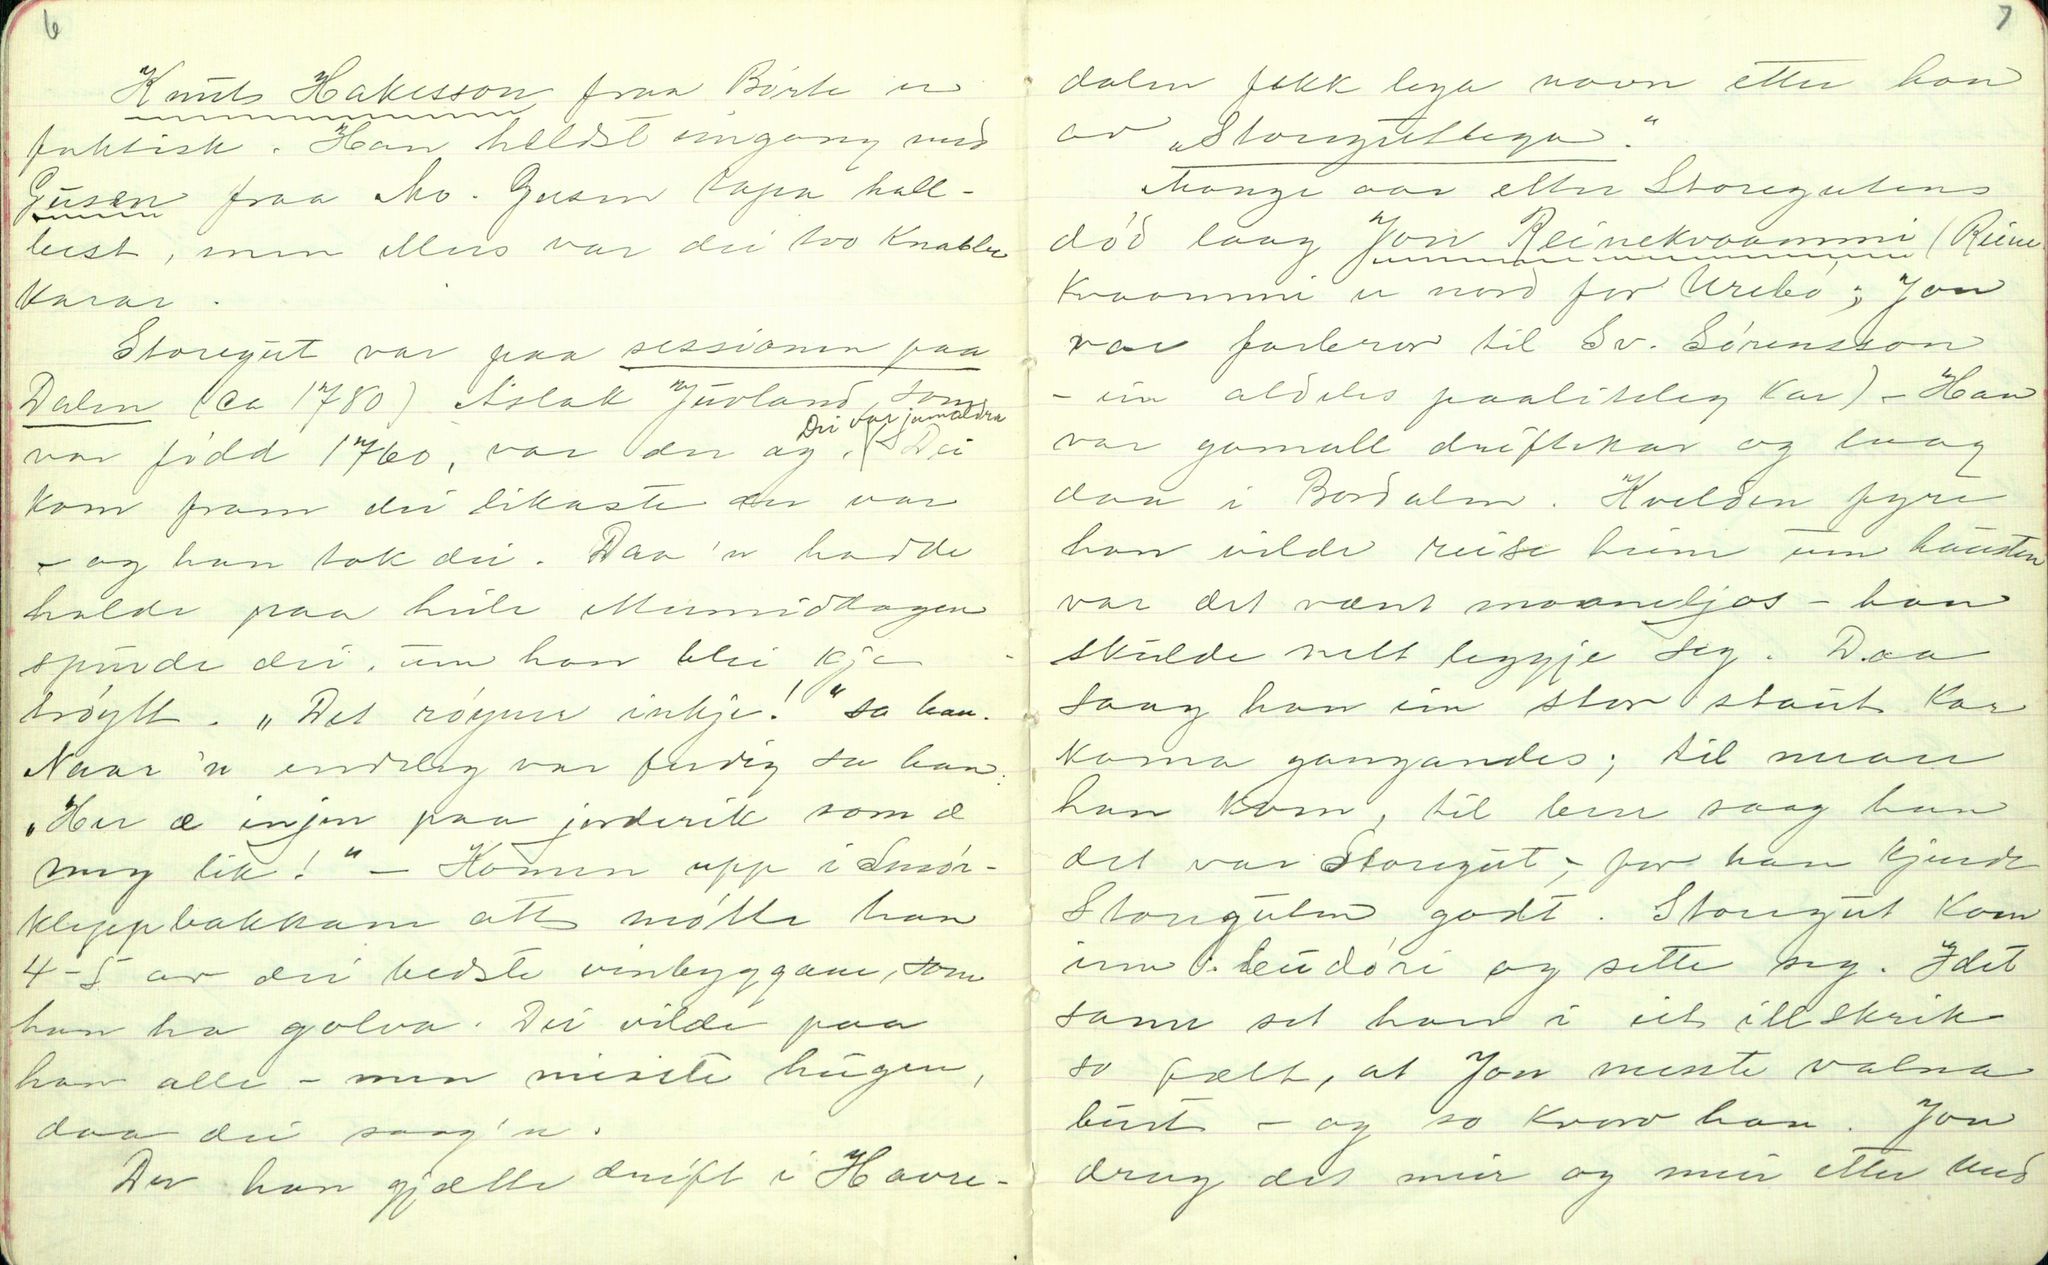 6
Knut Hakesson fraa Börte er
faktisk. Han heldst eingong med
Gusen fraa Mo. Gusen tapa hall-
leist, men elles var dei tvo knable
karar.
Storegut var paa sessionen paa
Dalen (ca 1780) Aslak Juvland, som
var född 1760, var der og. Dei var jamaldra Dei
kom fram dei likaste der var
- og han tok dei. Daa'n hadde
halde paa heile ettermiddagen
spurde dei, um han blei kje
tröytt. "Det röyner inkje!" sa han.
Naar'n endeleg var ferdig sa han:
"Her æ injen paa jorderik som æ
meg lik!" - Komen upp i Smör-
kleppbakkane att mötte han
4-5 av dei bedste vinbyggane, som
han ha golva. Dei vilde paa
han alle - men miste hugen,
daa dei saag'n.
Der han gjætte drift i Havre-
7
dalen fekk lega navn etter han
av "Storegutlega".
Mange aar etter Storegutens
död laag Jon Reinekvaammi (Reine
kvaammi er nord for Urebö; Jon
var farbror til Sv. Sörensson
- ein aldeles paaliteleg kar) - Han
var gamall driftekar og laag
daa i Bordalen. Kvelden fyre
han vilde reise heim um hausten
var det vænt maaneljos - han
skulde nett leggje seg. Daa
saag han ein stor staut kar
koma gangandes; til nærare
han kom, til betre saag han
det var Storegut, for han kjende
Storeguten godt. Storegut kom
inn i budöri og sette seg. I det
same set han i eit illskrik
so fælt, at Jon meste valna
burt - og so kvarv han. Jon
drog det meir og meir etter med